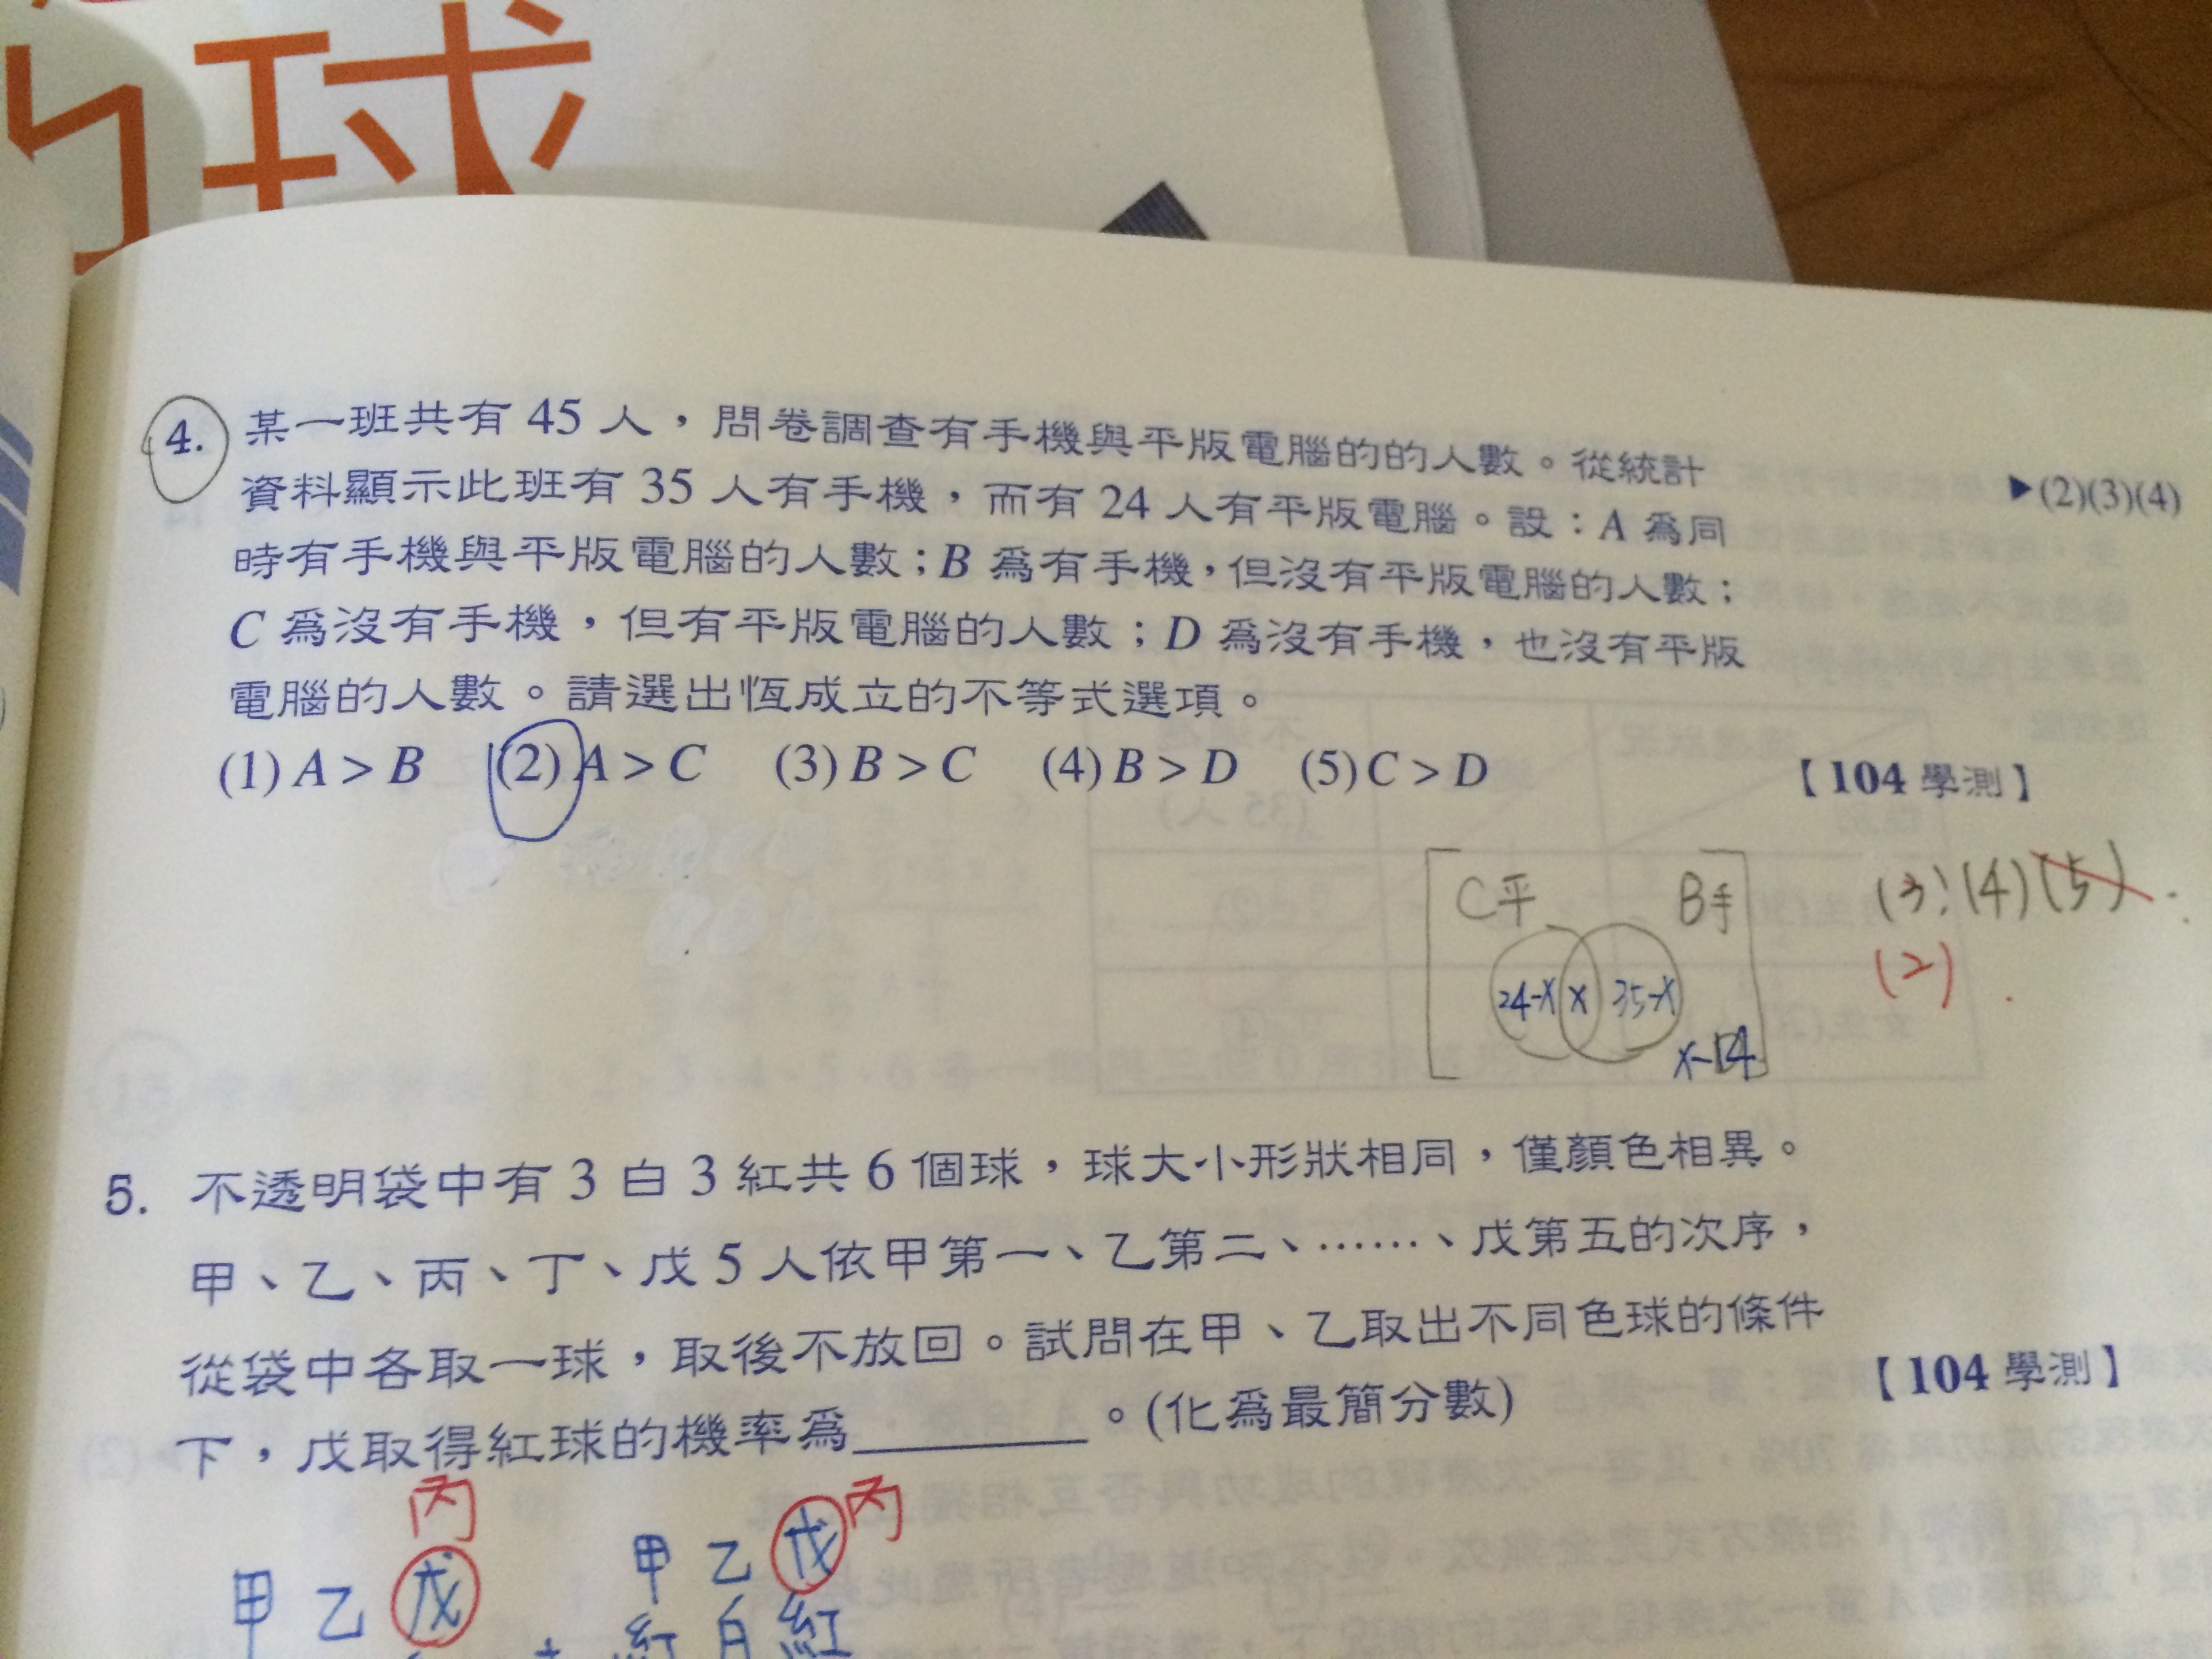 球
4. 某一班共有 45 人，問卷調查有手機與平版電腦的的人數。從統計
資料顯示此班有 35 人有手機，而有 24 人有平版電腦。設：A 為同
時有手機與平版電腦的人數；B 為有手機，但沒有平版電腦的人數；
C 為沒有手機，但有平版電腦的人數；D 為沒有手機，也沒有平版
電腦的人數。請選出恆成立的不等式選項。
▶(2)(3)(4)
(1) A > B (2) A > C (3) B > C (4) B > D (5) C > D
【104 學測】
C平 B手
24-x x 35-x
x-14
(3)(4)(5)
(2)
5. 不透明袋中有 3 白 3 紅共 6 個球，球大小形狀相同，僅顏色相異。
甲、乙、丙、丁、戊 5 人依甲第一、乙第二、……、戊第五的次序，
從袋中各取一球，取後不放回。試問在甲、乙取出不同色球的條件
下，戊取得紅球的機率為________。(化為最簡分數)
【104 學測】
丙 丙
甲 乙 戊 甲 乙 戊
+ 紅 白 紅